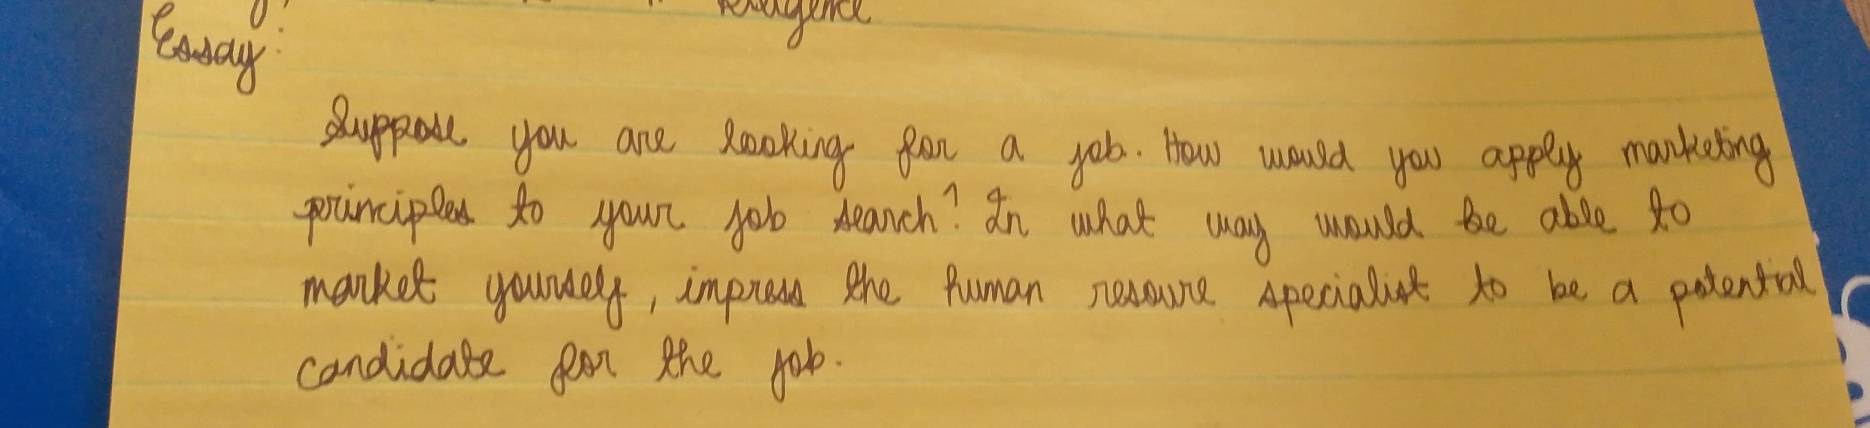 Essay:
Suppose you are looking for a job. How would you apply marketing
principles to your job search? In what way would be able to
market yourself, impress the human resoure specialist to be a potential
candidate for the job.